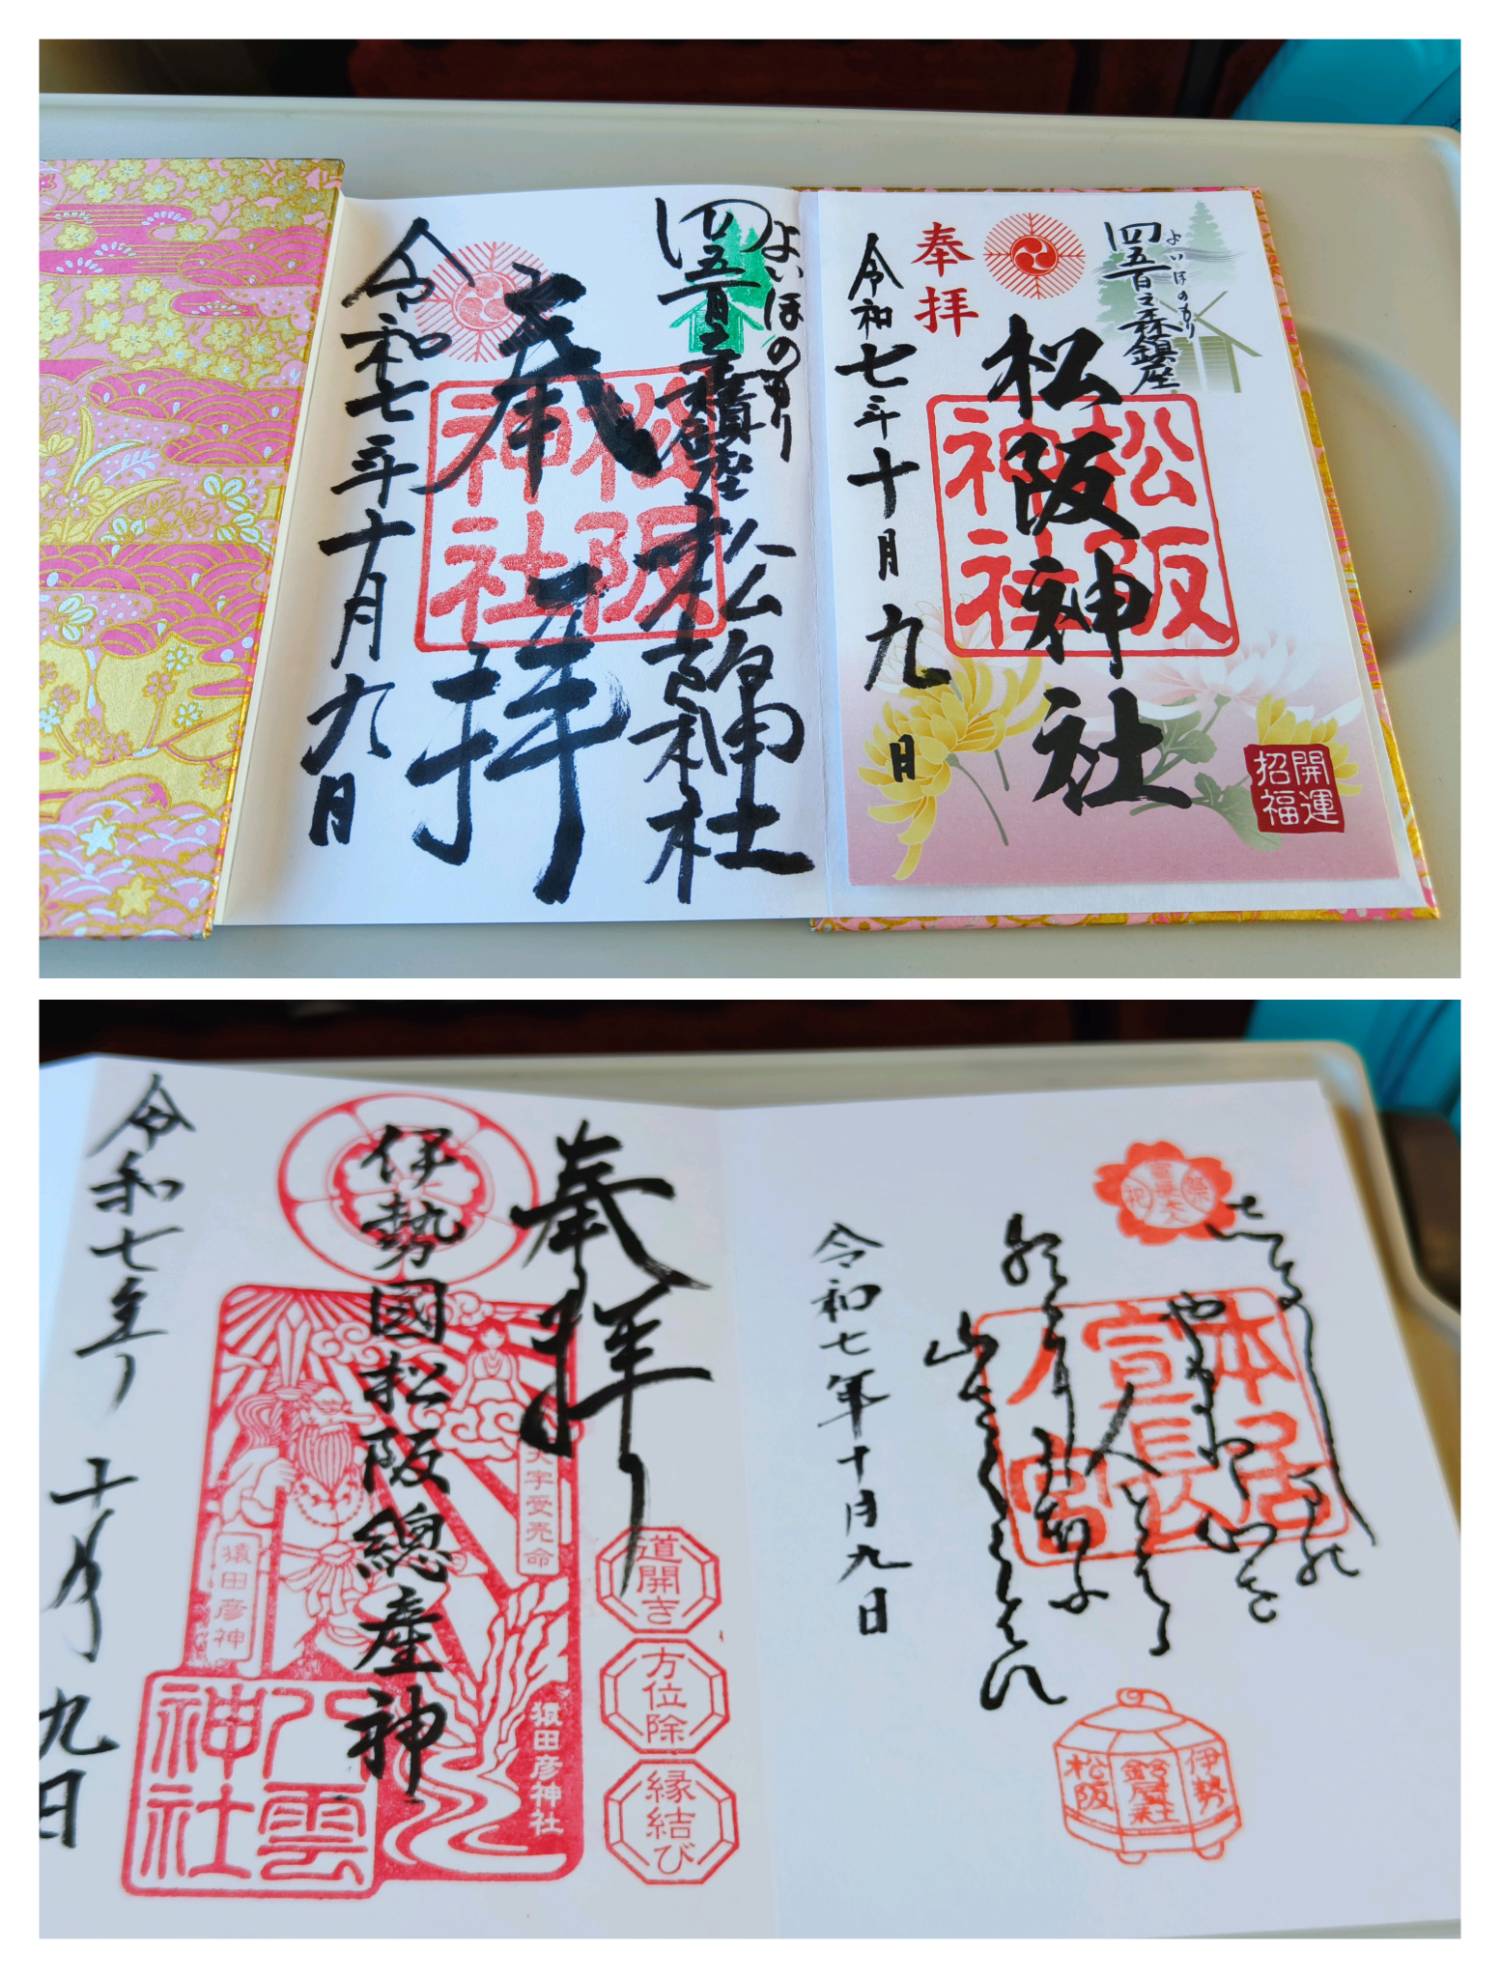 よいほのもり
四五百之森鎮座
松阪神社
奉拝
松阪神社
令和七年十月九日
よいほのもり
四五百之森鎮座
松阪神社
松阪神社
奉拝
令和七年十月九日
開運
招福
本居
宣長
ノ宮
山さくらはな
令和七年十月九日
伊勢
鈴屋社
松阪
奉拝
伊勢國松阪總産神
天宇受売命
猿田彦神
猿田彦神社
八雲
神社
道開き
方位除
縁結び
令和七年
十月
九日